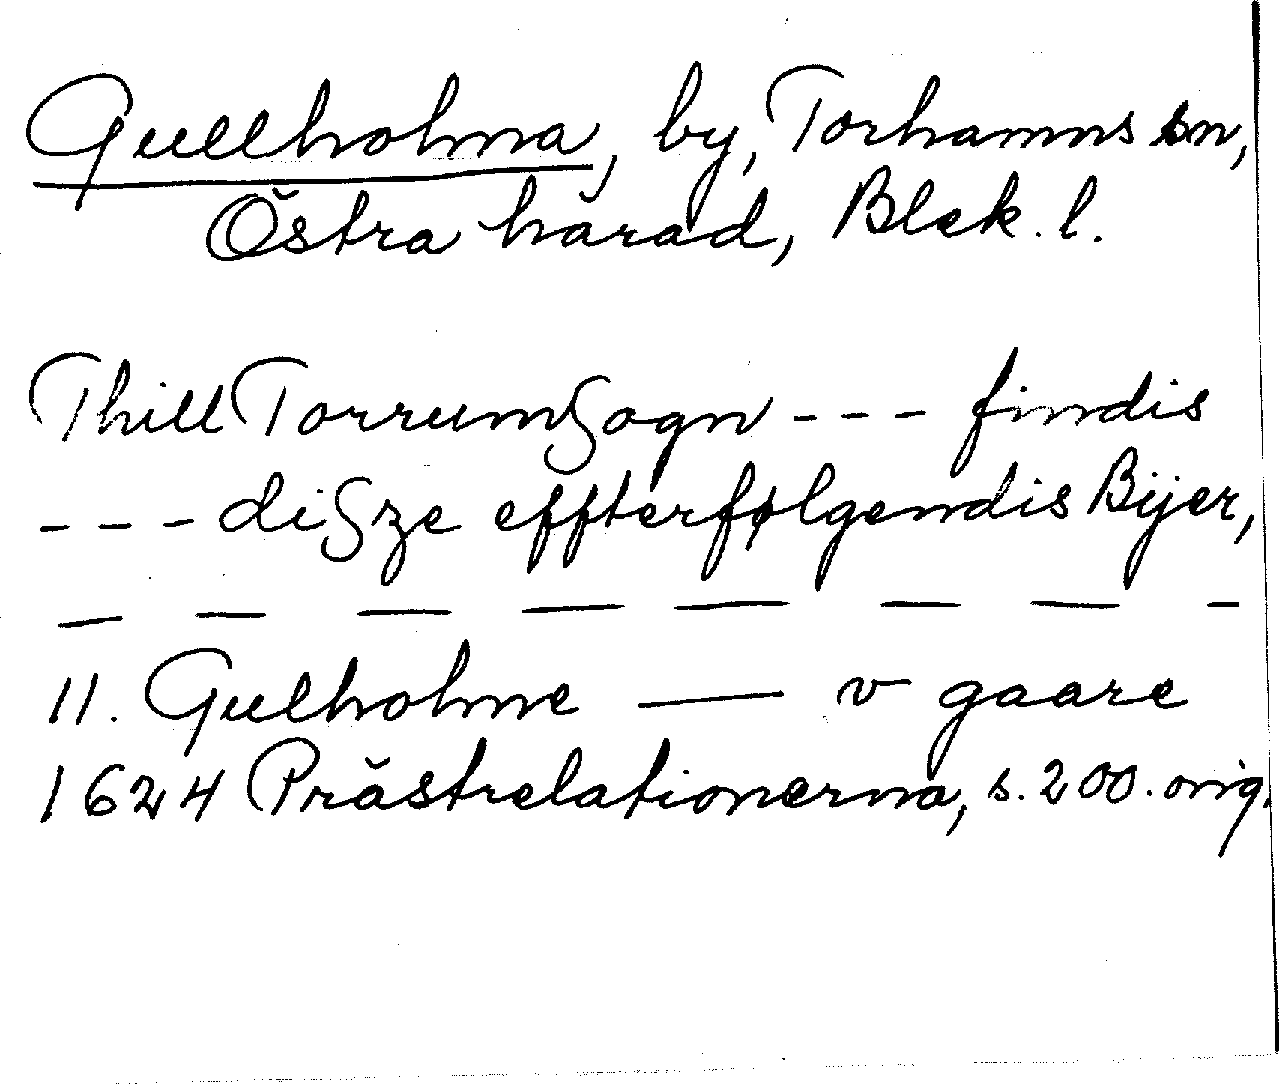 Gullholma, by, Torhamns sn,
Östra härad, Blek. l.
Thill Torrumsogn - - - findis
- - - disze effterfølgendis Bijer,
— — — — — — — -
11. Gulholme — v gaare
1624 Prästrelationerna, s. 200. orig.